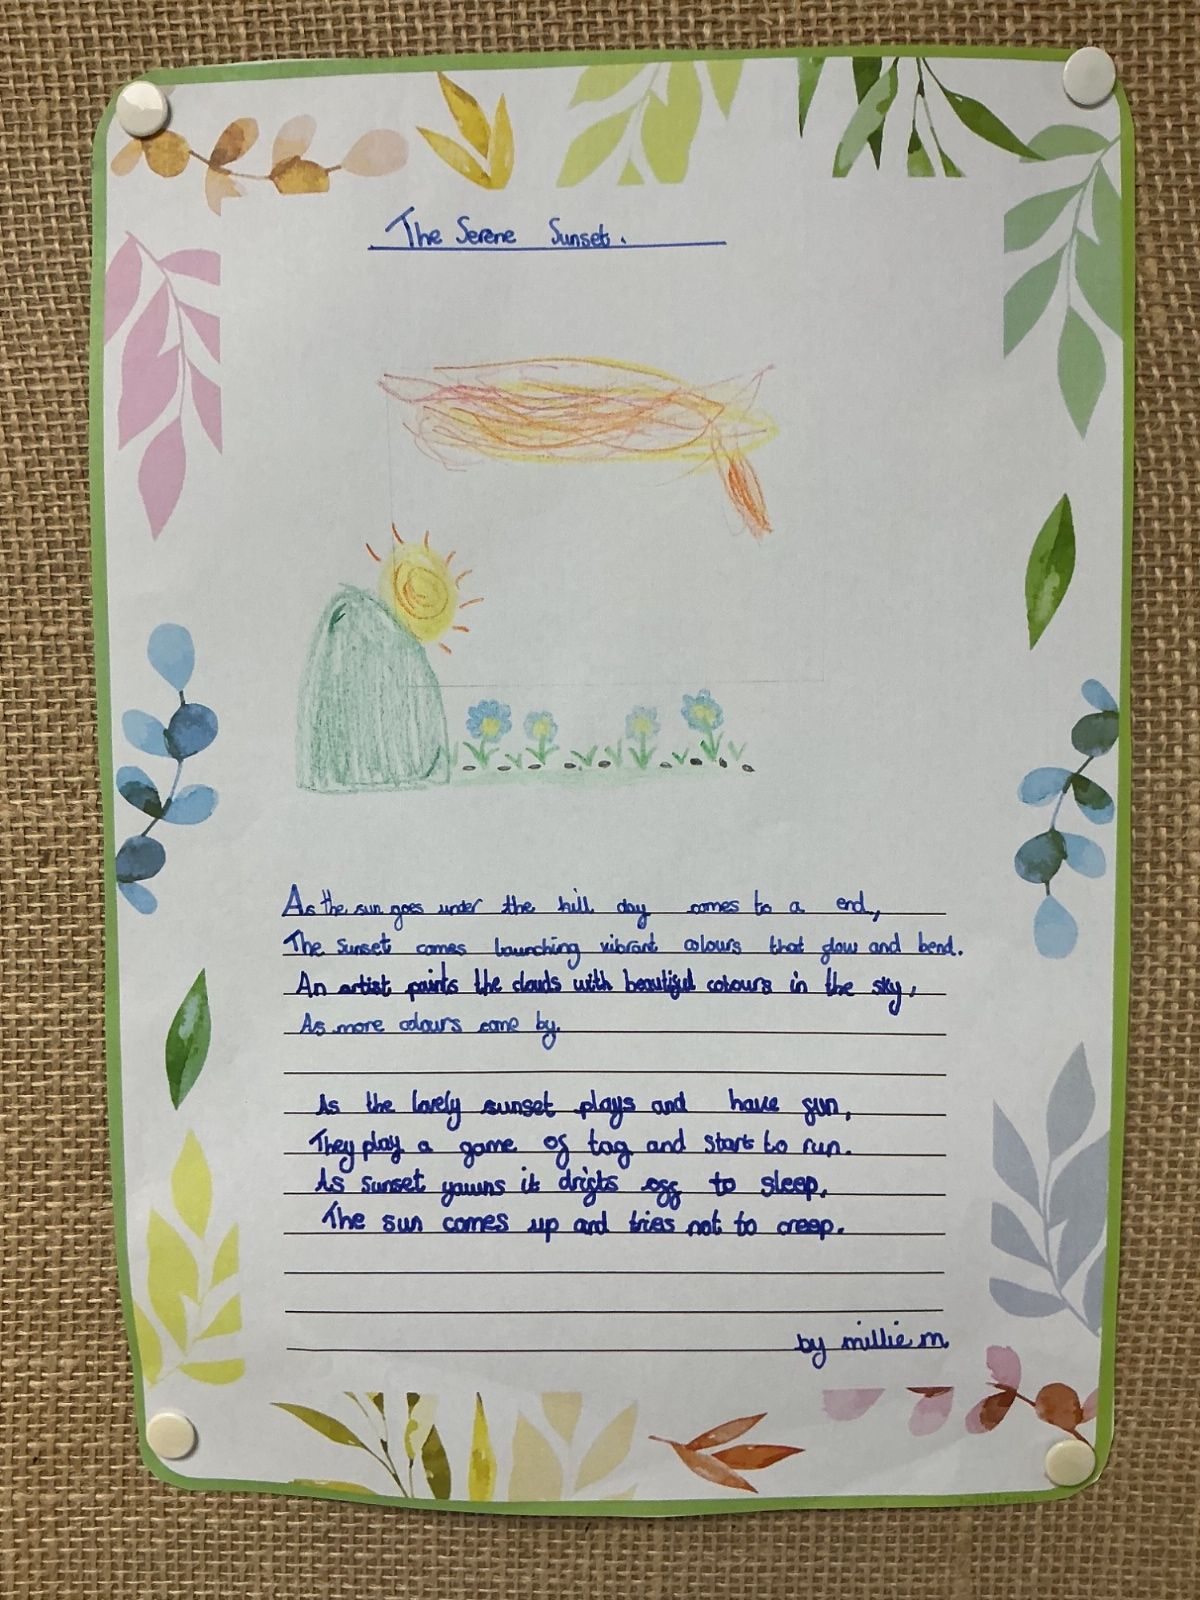 The Serene Sunset.
As the sun goes under the hill day comes to a end,
The sunset comes launching vibrant colours that glow and bend.
An artist paints the clouds with beautiful colours in the sky,
As more colours come by.
As the lovely sunset plays and have fun,
They play a game of tag and start to run.
As sunset yawns it drifts off to sleep,
The sun comes up and tries not to creep.
by millie m